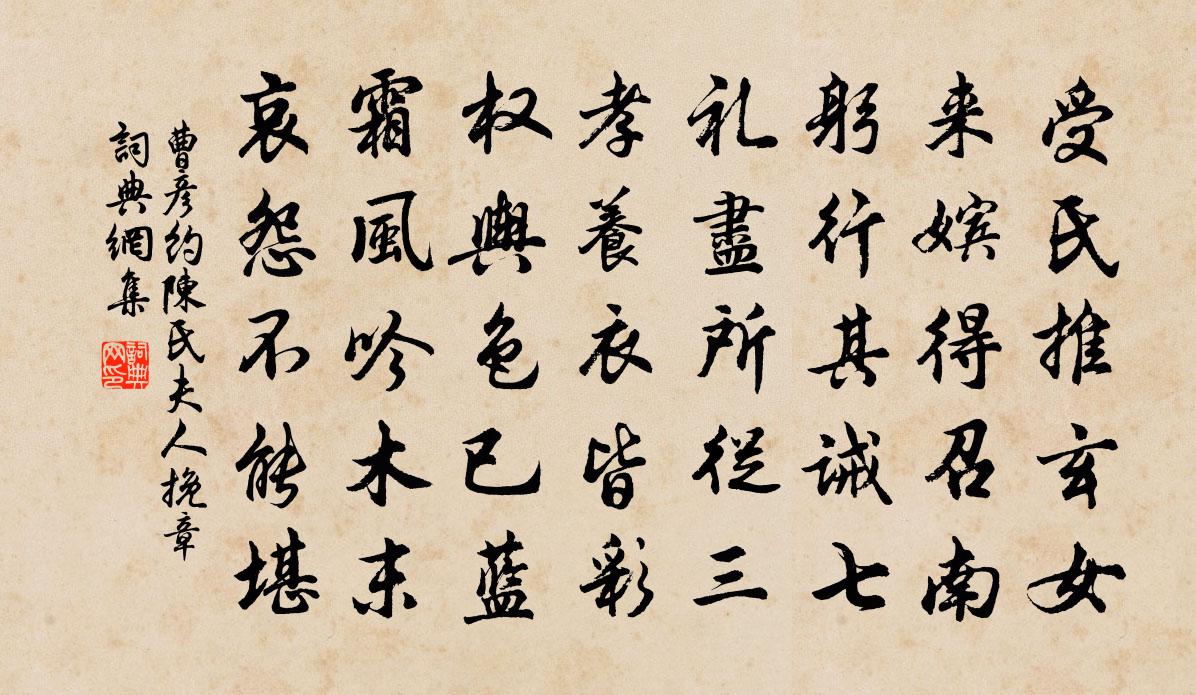 受氏推玄女
来嫔得召南
躬行其誡七
礼盡所從三
孝養衣皆彩
权輿色已藍
霜風吟木末
哀怨不能堪
曹彦約陳氏夫人挽章
詞典網集
詞典网印